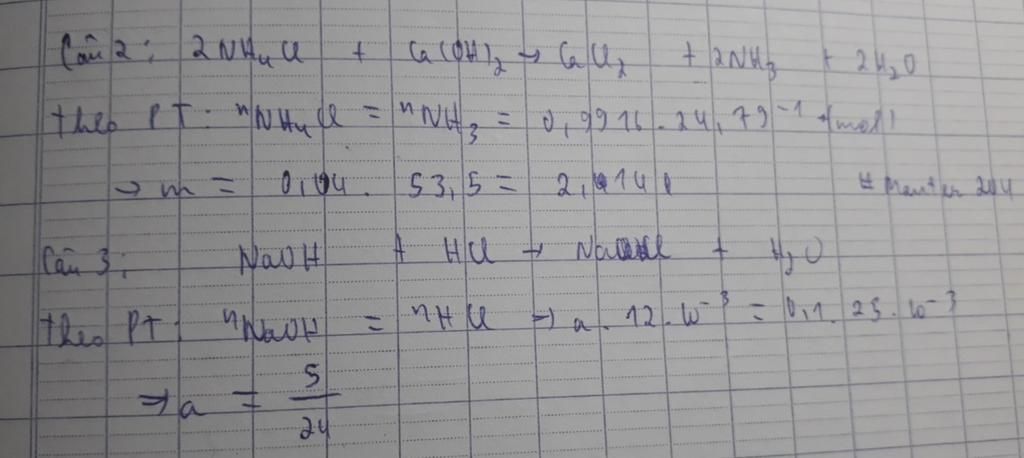 Câu 2: 2NH₄Cl + Ca(OH)₂ → CaCl₂ + 2NH₃ + 2H₂O
theo PT: nNH₄Cl = nNH₃ = 0,9916 . 24,79⁻¹ (mol)
→ m = 0,04 . 53,5 = 2,14
Câu 3: NaOH + HCl → NaCl + H₂O
theo PT: nNaOH = nHCl → a . 12 . 10⁻³ = 0,1 . 25 . 10⁻³
⇒ a = 5/24